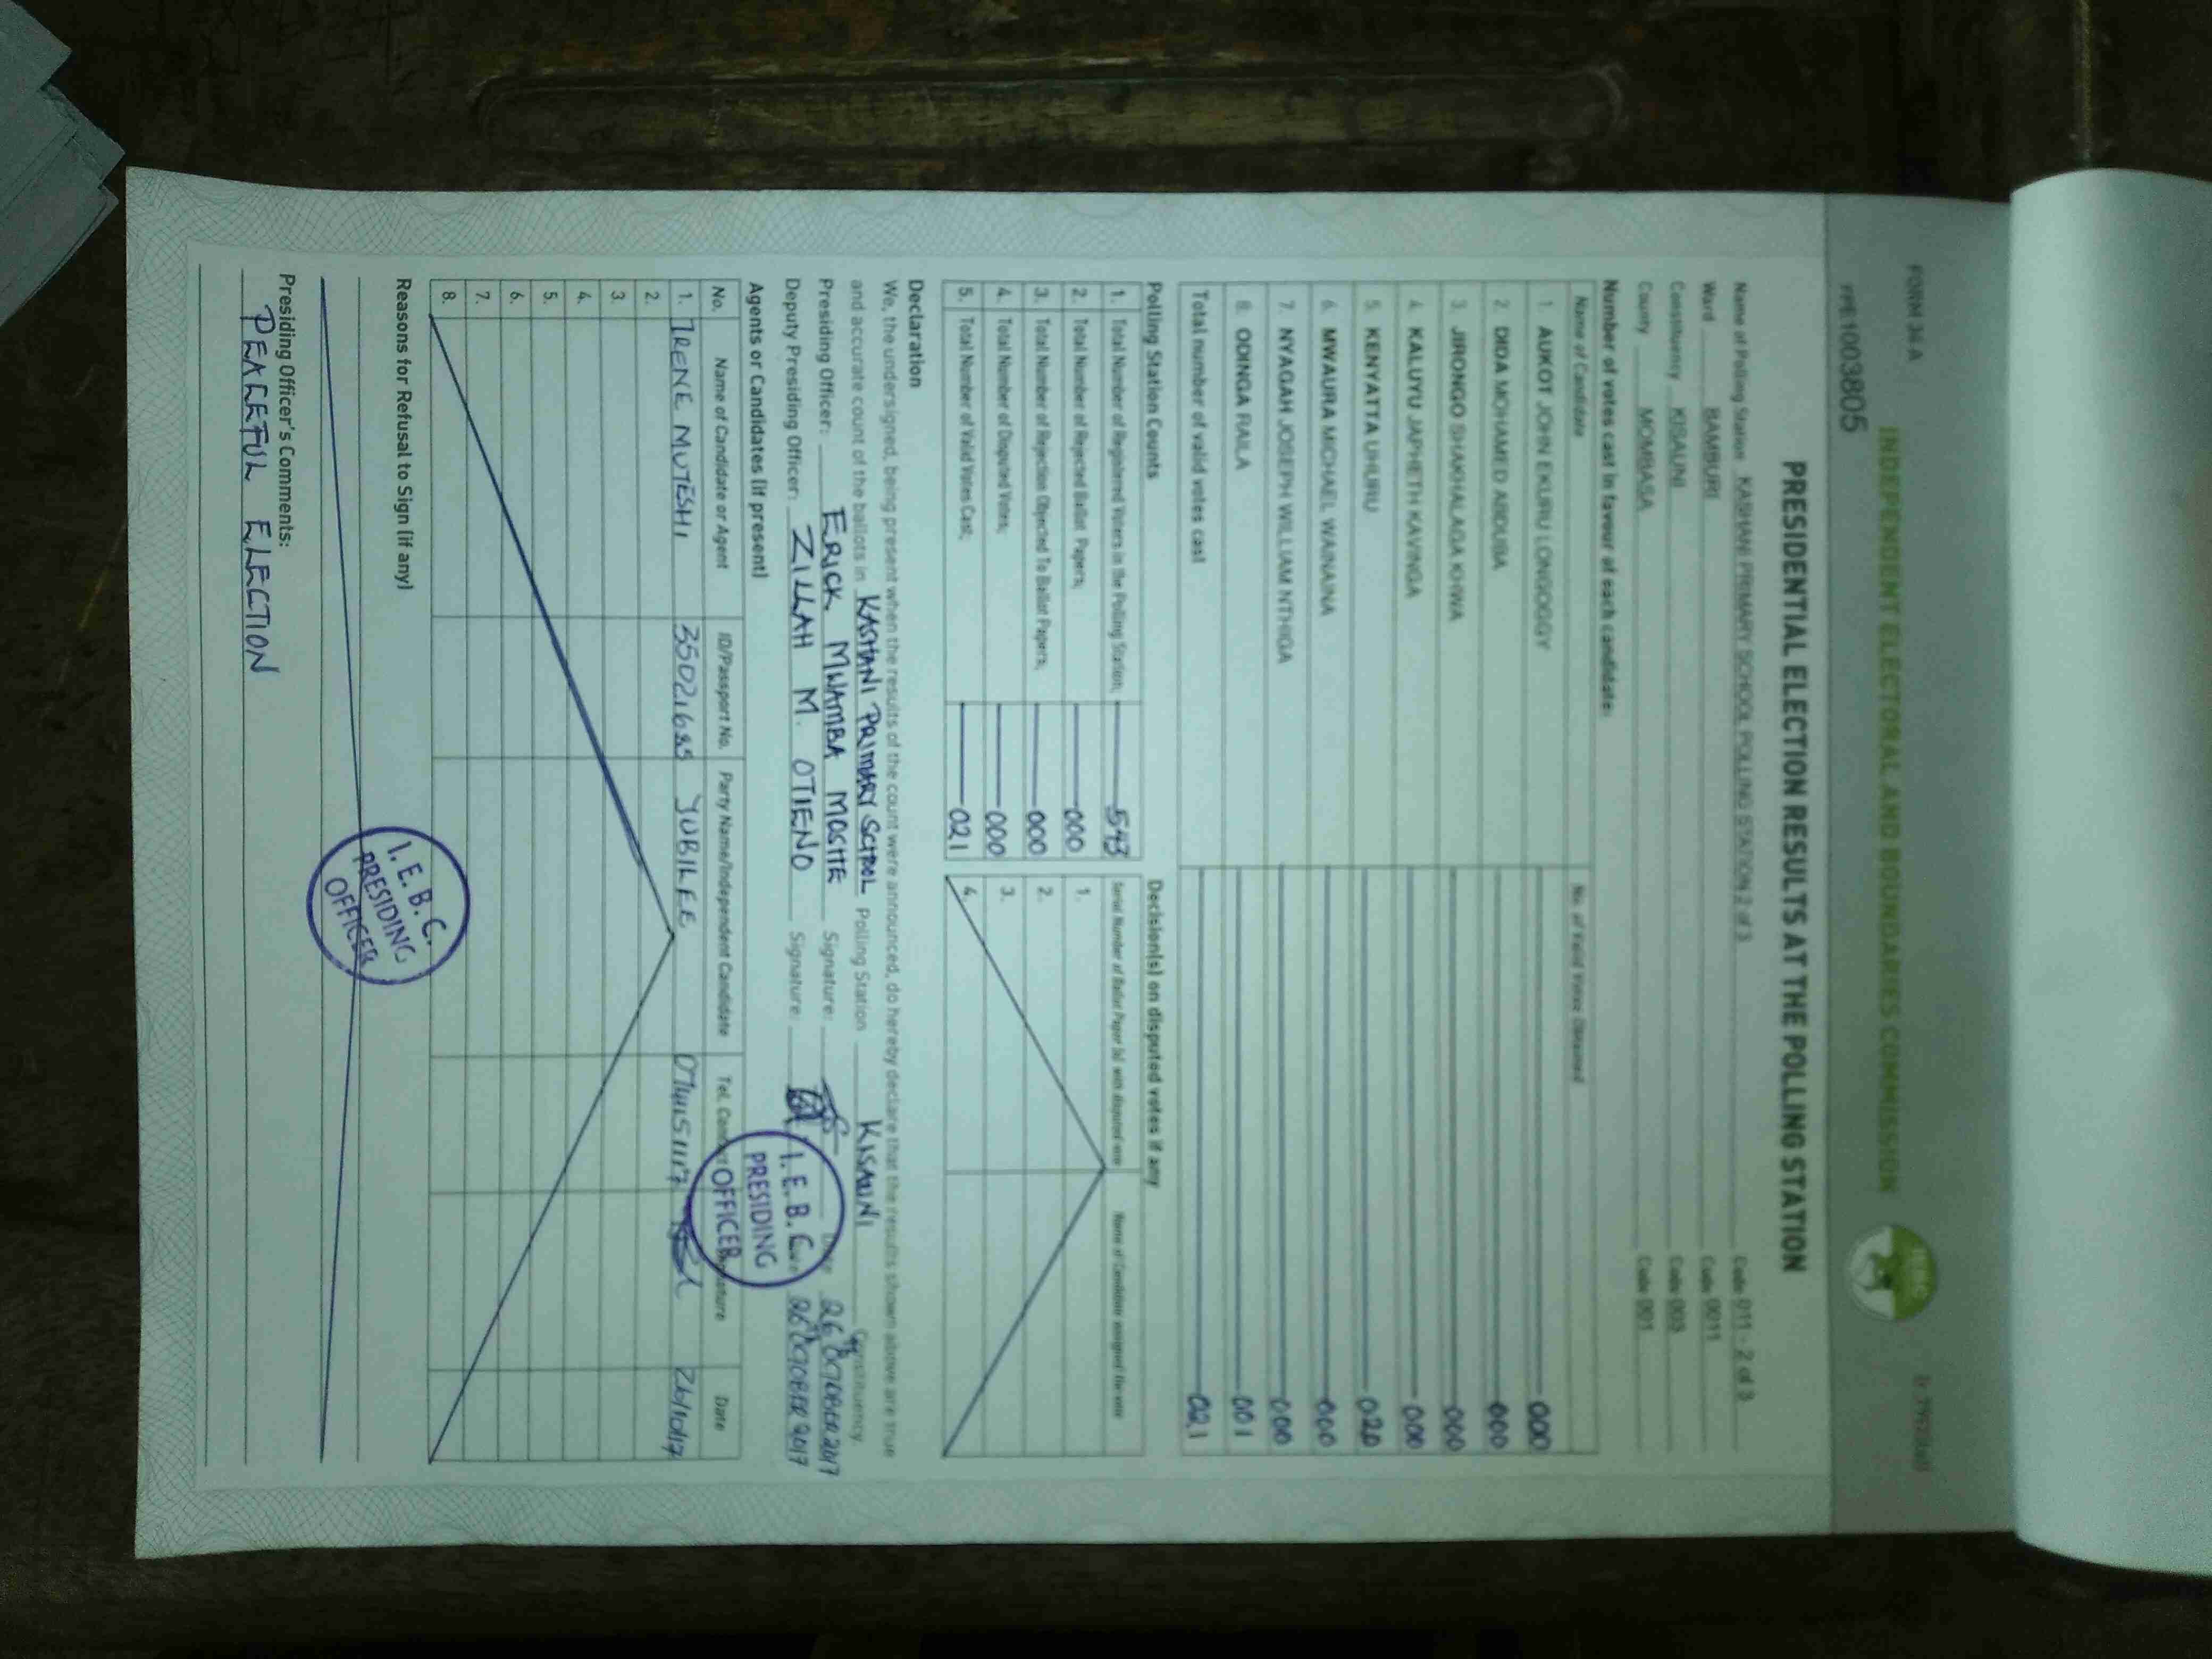 FORM 34 A
INDEPENDENT ELECTORAL AND BOUNDARIES COMMISSION
PRESIDENTIAL ELECTION RESULTS AT THE POLLING STATION
Name of Polling Station KASHANI PRIMARY SCHOOL POLLING STATION 2 of 3 Code 011 - 2 of 3
Ward BAMBURI Code 0011
Constituency KISAUNI Code 003
County MOMBASA Code 001
Number of votes cast in favour of each candidate:
Name of Candidate No. of Valid Votes Obtained
1. AUKOT JOHN EKURU LONGOGGY 000
2. DIDA MOHAMED ABDUBA 000
3. JIRONGO SHAKHALAGA KHWA 000
4. KALUYU JAPHETH KAVINGA 000
5. KENYATTA UHURU 020
6. MWAURA MICHAEL WAINAINA 000
7. NYAGAH JOSEPH WILLIAM NTHIGA 000
8. ODINGA RAILA 001
Total number of valid votes cast 021
Polling Station Counts
1. Total Number of Registered Voters in the Polling Station; 543
2. Total Number of Rejected Ballot Papers; 000
3. Total Number of Rejection Objected To Ballot Papers; 000
4. Total Number of Disputed Votes; 000
5. Total Number of Valid Votes Cast; 021
Decision(s) on disputed votes if any
Serial Number of Ballot Paper (s) with disputed vote Name of Candidate assigned the vote
1.
2.
3.
4.
Declaration
We, the undersigned, being present when the results of the count were announced, do hereby declare that the results shown above are true
and accurate count of the ballots in KASHANI PRIMARY SCHOOL Polling Station KISAUNI Constituency
Presiding Officer: ERICK MWAMBA Signature: Date 26 OCTOBER 2017
Deputy Presiding Officer: ZILLAH M. OTIENO Signature: 26 OCTOBER 2017
I. E. B. C.
PRESIDING
OFFICER
Agents or Candidates (if present)
No. Name of Candidate or Agent ID/Passport No. Party Name/Independent Candidate Tel. Contact Signature Date
1. IRENE MUTESHI JUBILEE 26/10/17
2.
3.
4.
5.
6.
7.
8.
Reasons for Refusal to Sign (if any)
I. E. B. C.
PRESIDING
OFFICER
Presiding Officer's Comments:
PEACEFUL ELECTION